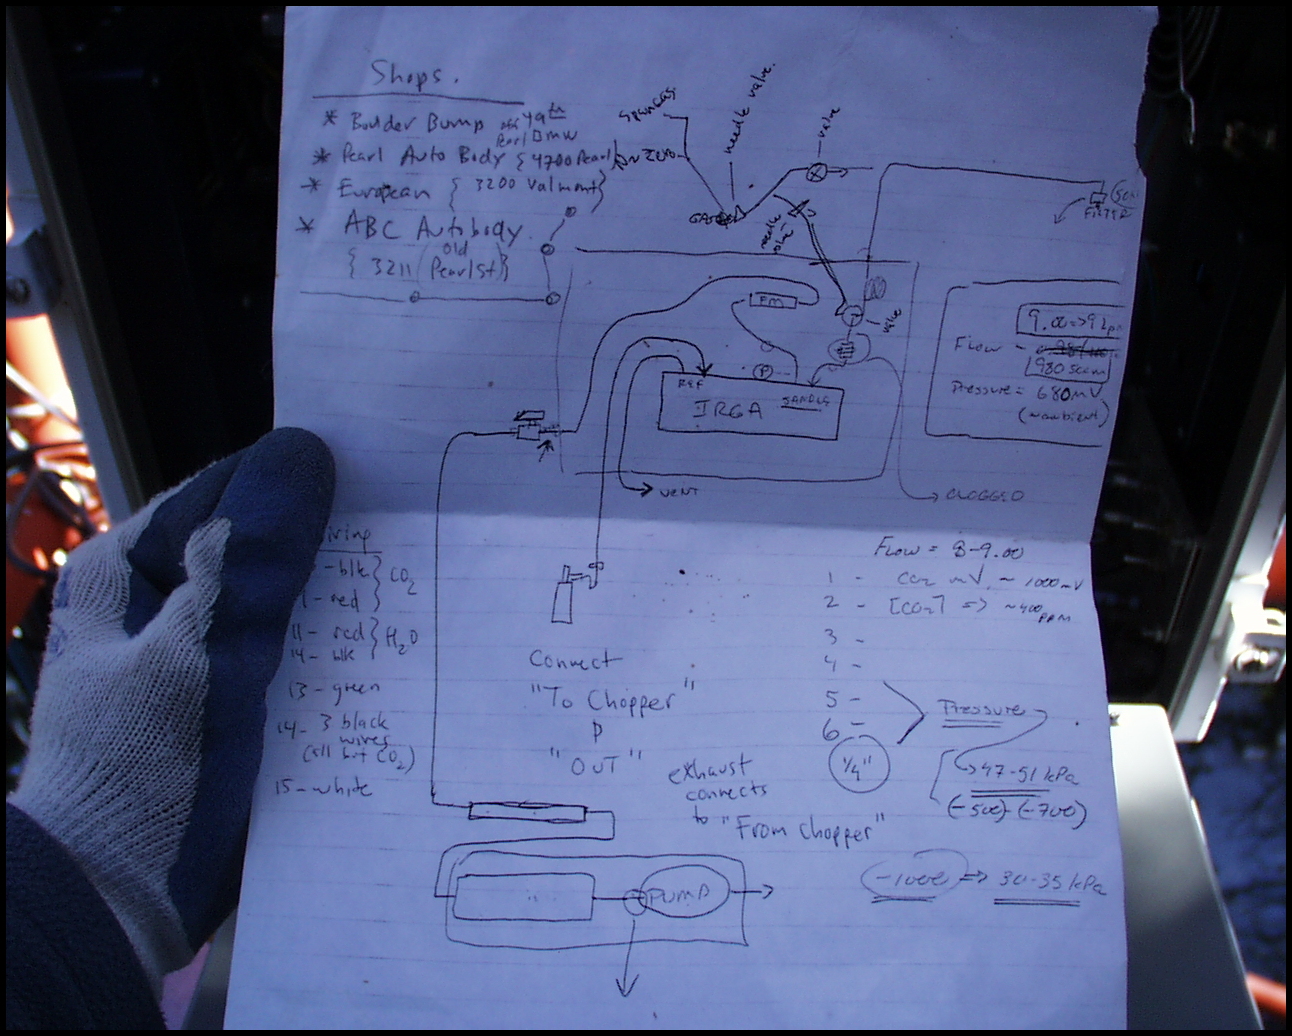 Shops.
* Boulder Bump off 49th
Pearl BMW
* Pearl Auto Body { 4700 Pearl }
* European { 3200 Valmont }
* ABC Autobody
{ 3211 (old Pearl st) }
Span Gas
needle valve.
valve
zero
GAS
needle
FILTER
FM
valve
REF
P
SAMPLE
IRGA
VENT
CLOGGED
9.00 =>
Flow =
980 sccm
Pressure = 680mV
(~ambient)
Flow = 8-9.00
1 - CO2 mV, ~ 1000mV
2 - [CO2] => ~400 ppm
3 -
4 -
5 -
6 -
1/4"
Pressure
47-51 kPa
(-500) - (-700)
-1000 => 30-35 kPa
- blk } CO2
- red
11 - red } H2O
14 - blk
13 - green
14 - 3 black
wires
(all but CO2)
15 - white
Connect
"To Chopper"
"OUT"
exhaust
connects
to "From Chopper"
PUMP